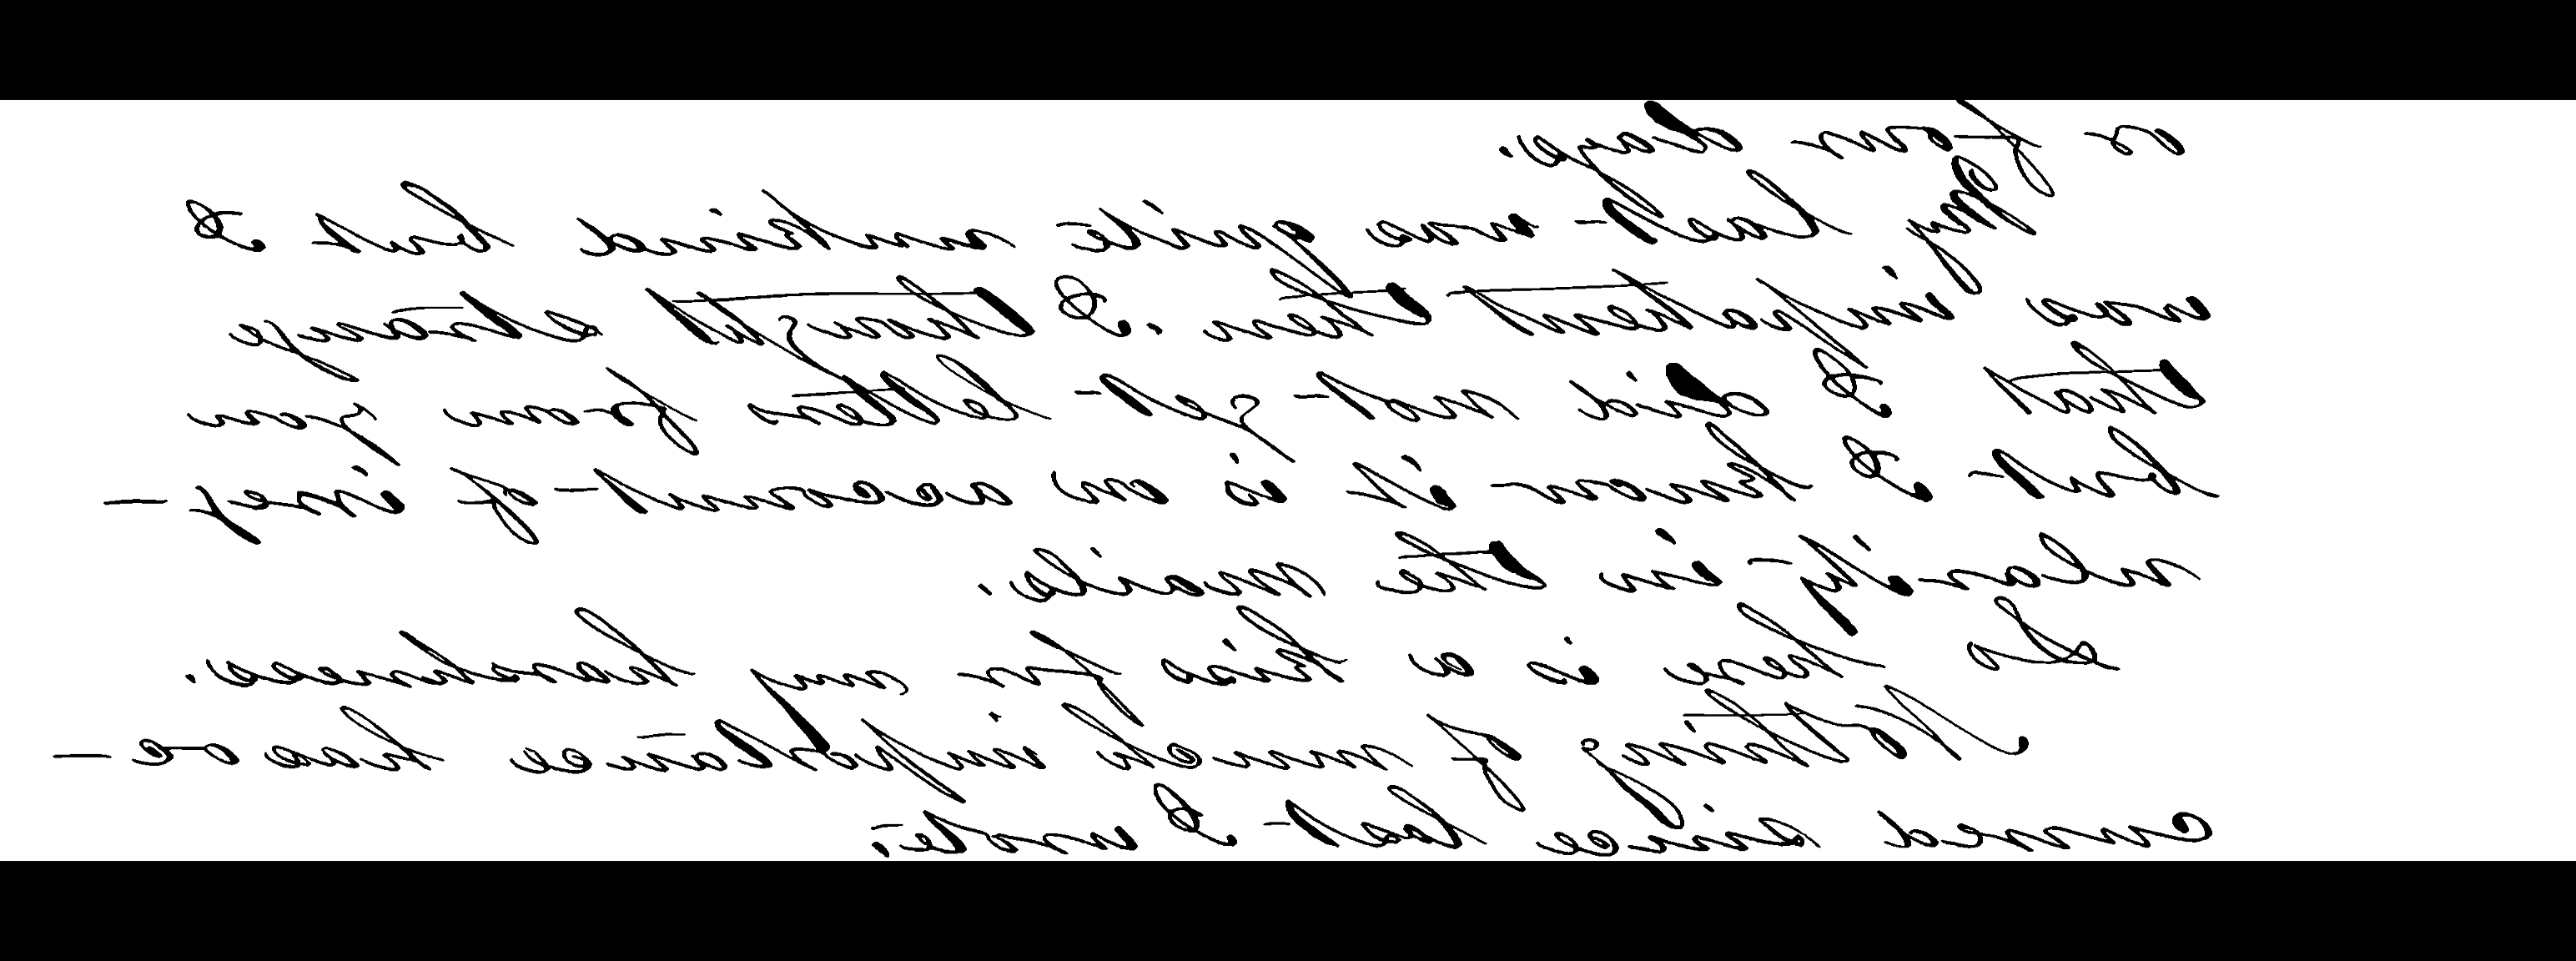 or four days.
My last was quite unkind but I
was impatient then. I thought strange
that I did not get letters from you
but I know it is on account of irreg-
ularity in the mails.
So here is a kiss for my harshness.
Nothing of much importance has oc-
cured since last I wrote;